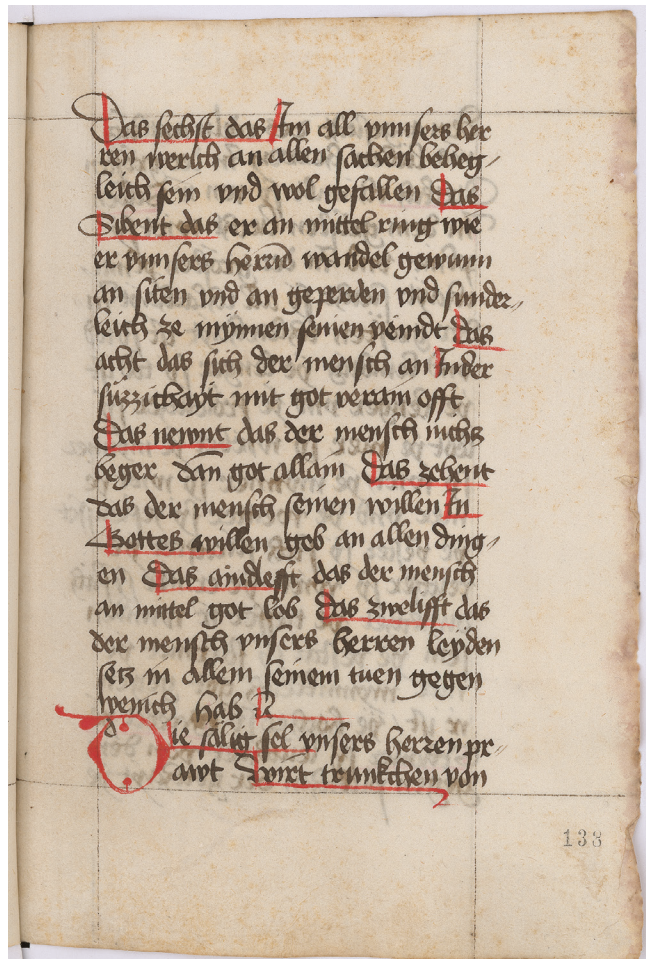 Das sechst das Im all vnnsers her
ren werich an allen sachen beheg-
leich sein vnd wol gefallen Das
Sibent das er an mittel ring wie
er vnnsers herrn̄ wandel gewunn
an siten vnd an geperden vnd sunder-
leich ze mynnen seinen veindt Das
acht das sich der mensch an Inder
süzzichayt mit got verain offt
Das newnt das der mensch nichz
beger dan̄ got allain Das zehent
das der mensch seinen willen In
Gottes willen geb an allen ding-
en Das aindlefft das der mensch
an mittel got lob Das zwelifft das
der mensch vnsers herren leyden
setz in allem seinem tuen gegen
wenich hab
Die sälig sel vnsers herren pr-
awt wirt trunkchen von
133